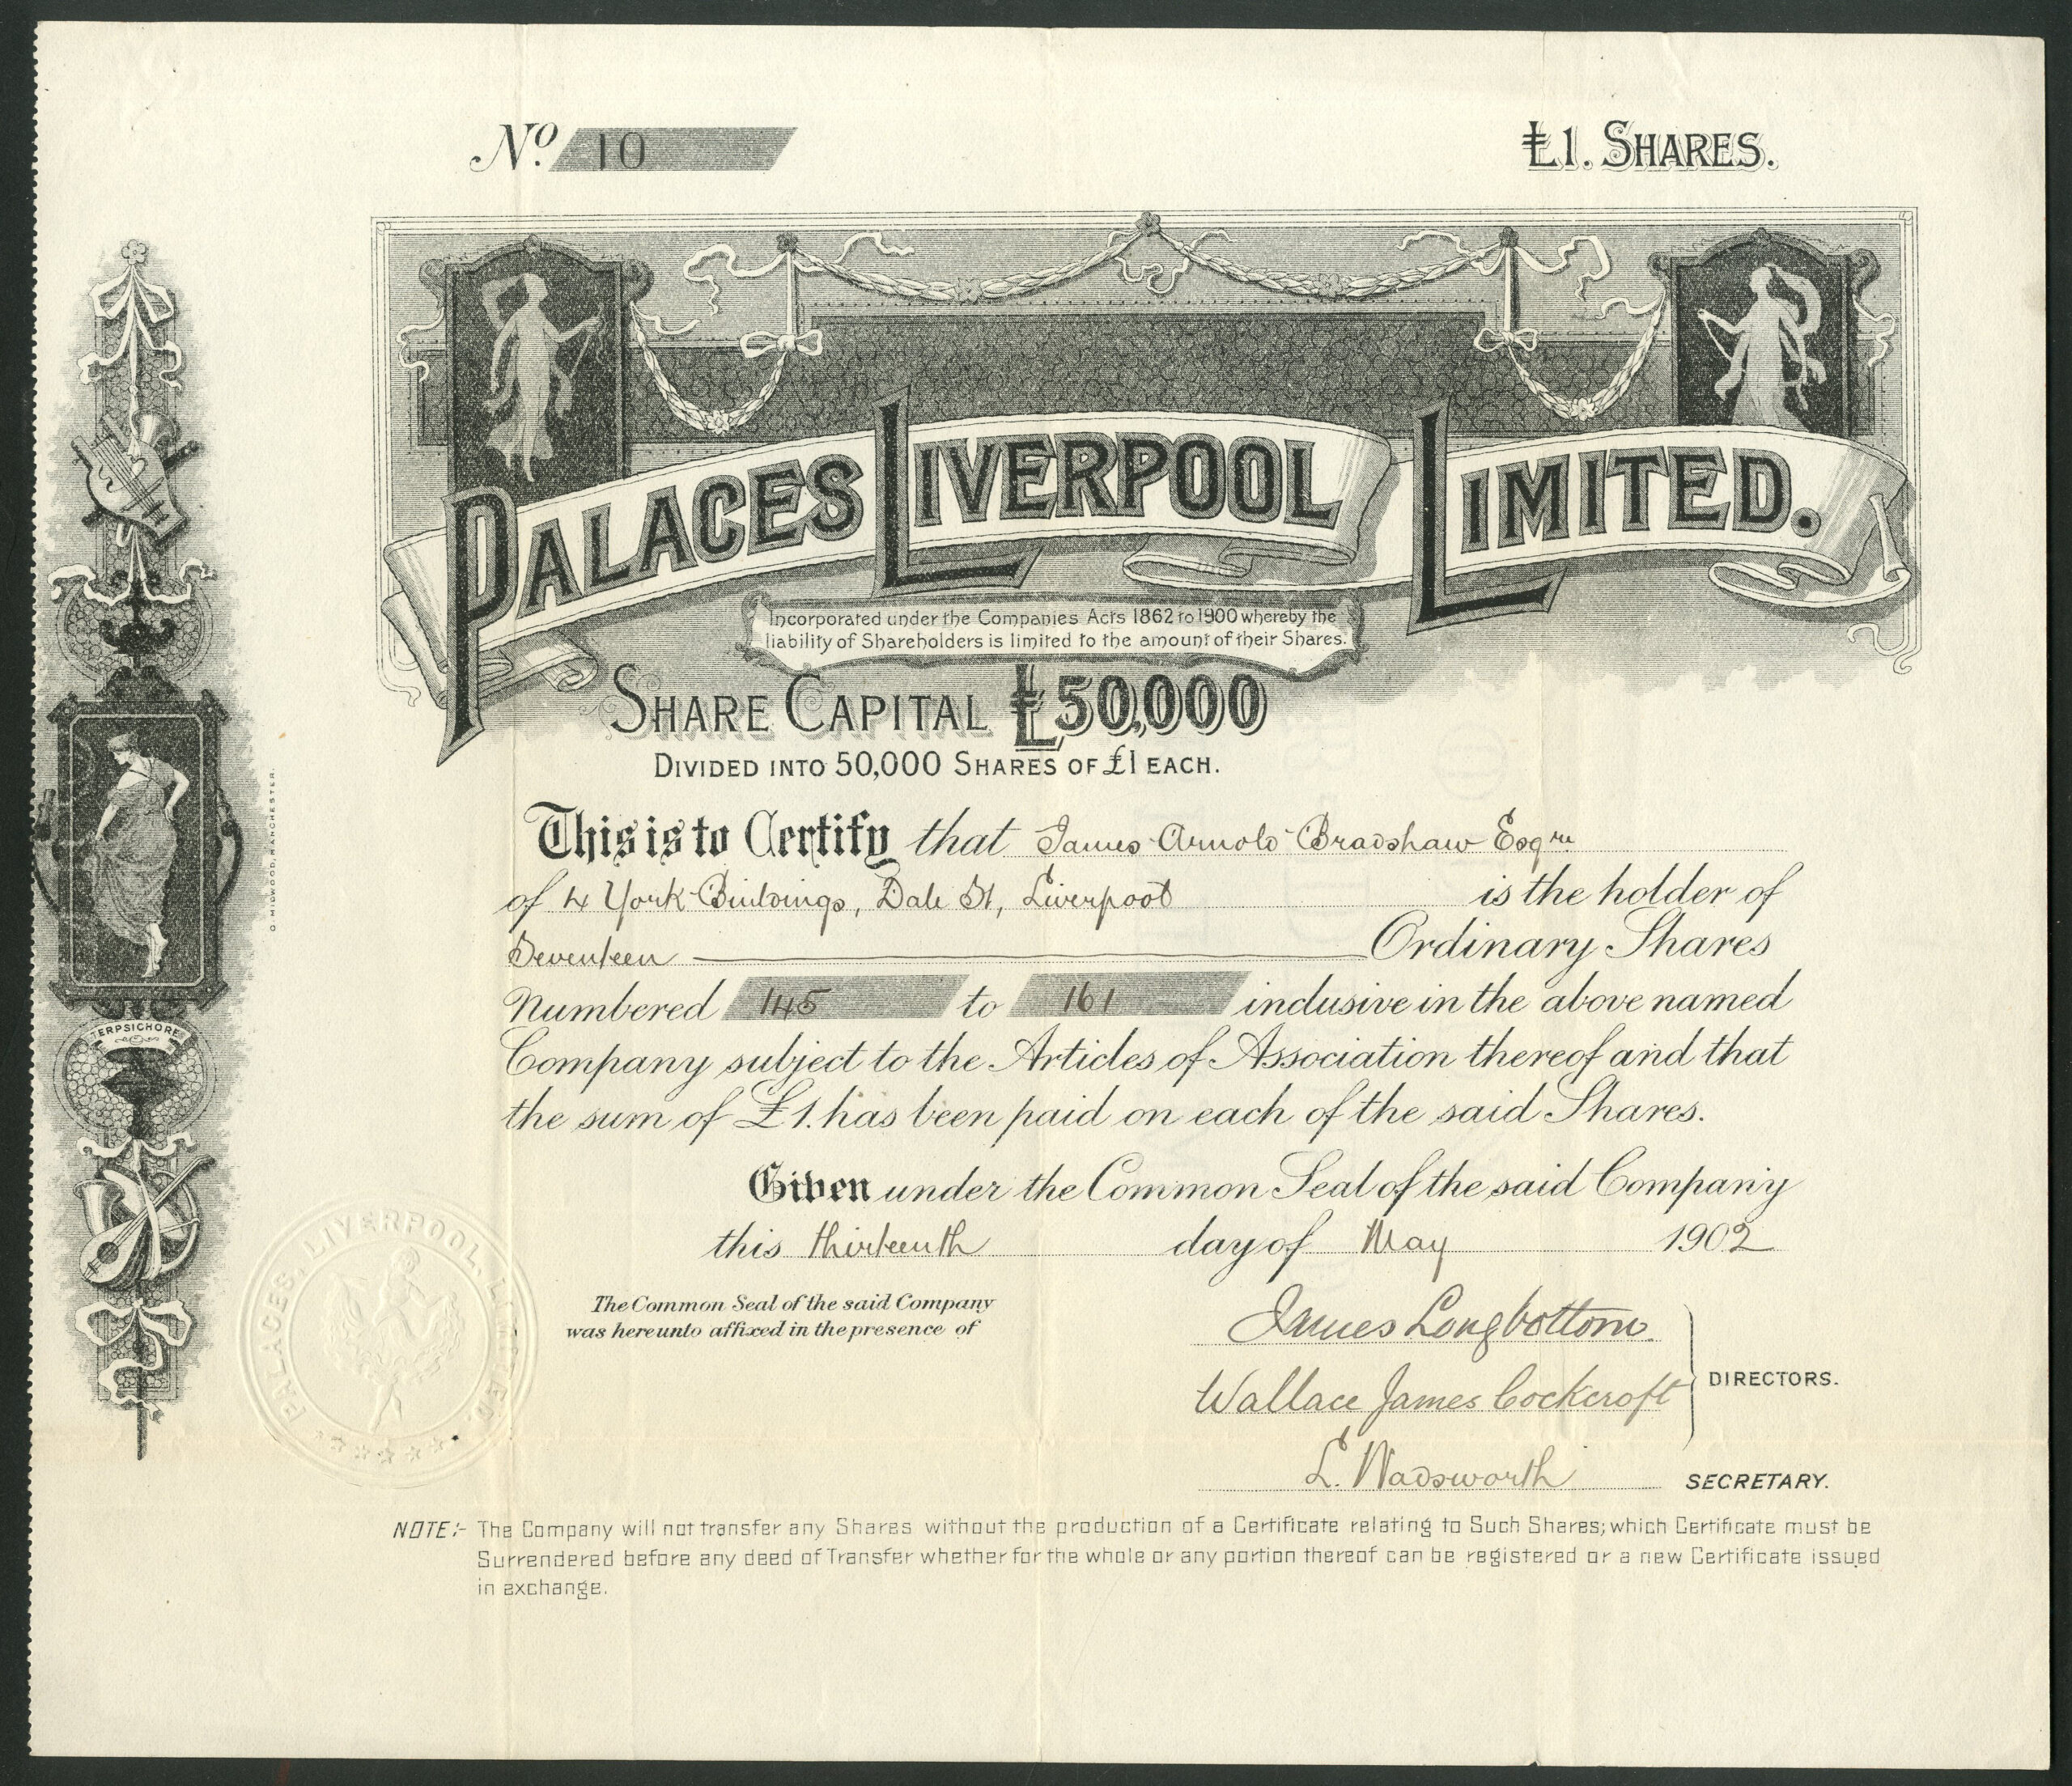 No. 10
£1. SHARES.
PALACES LIVERPOOL LIMITED.
Incorporated under the Companies Acts 1862 to 1900 whereby the
liability of Shareholders is limited to the amount of their Shares.
SHARE CAPITAL £50,000
DIVIDED INTO 50,000 SHARES OF £1 EACH.
This is to Certify that James Arnold Bradshaw Esqre
of 4 York Buildings, Dale St, Liverpool is the holder of
Seventeen Ordinary Shares
Numbered 145 to 161 inclusive in the above named
Company subject to the Articles of Association thereof and that
the sum of £1. has been paid on each of the said Shares.
Given under the Common Seal of the said Company
this thirteenth day of May 1902
The Common Seal of the said Company
was hereunto affixed in the presence of
James Longbottom.
Wallace James Cockcroft
DIRECTORS.
L. Wadsworth
SECRETARY.
NOTE:- The Company will not transfer any Shares without the production of a Certificate relating to Such Shares; which Certificate must be
Surrendered before any deed of Transfer whether for the whole or any portion thereof can be registered or a new Certificate issued
in exchange.
TERPSICHORE
PALACES, LIVERPOOL, LIMITED.
MIDWOOD, MANCHESTER.